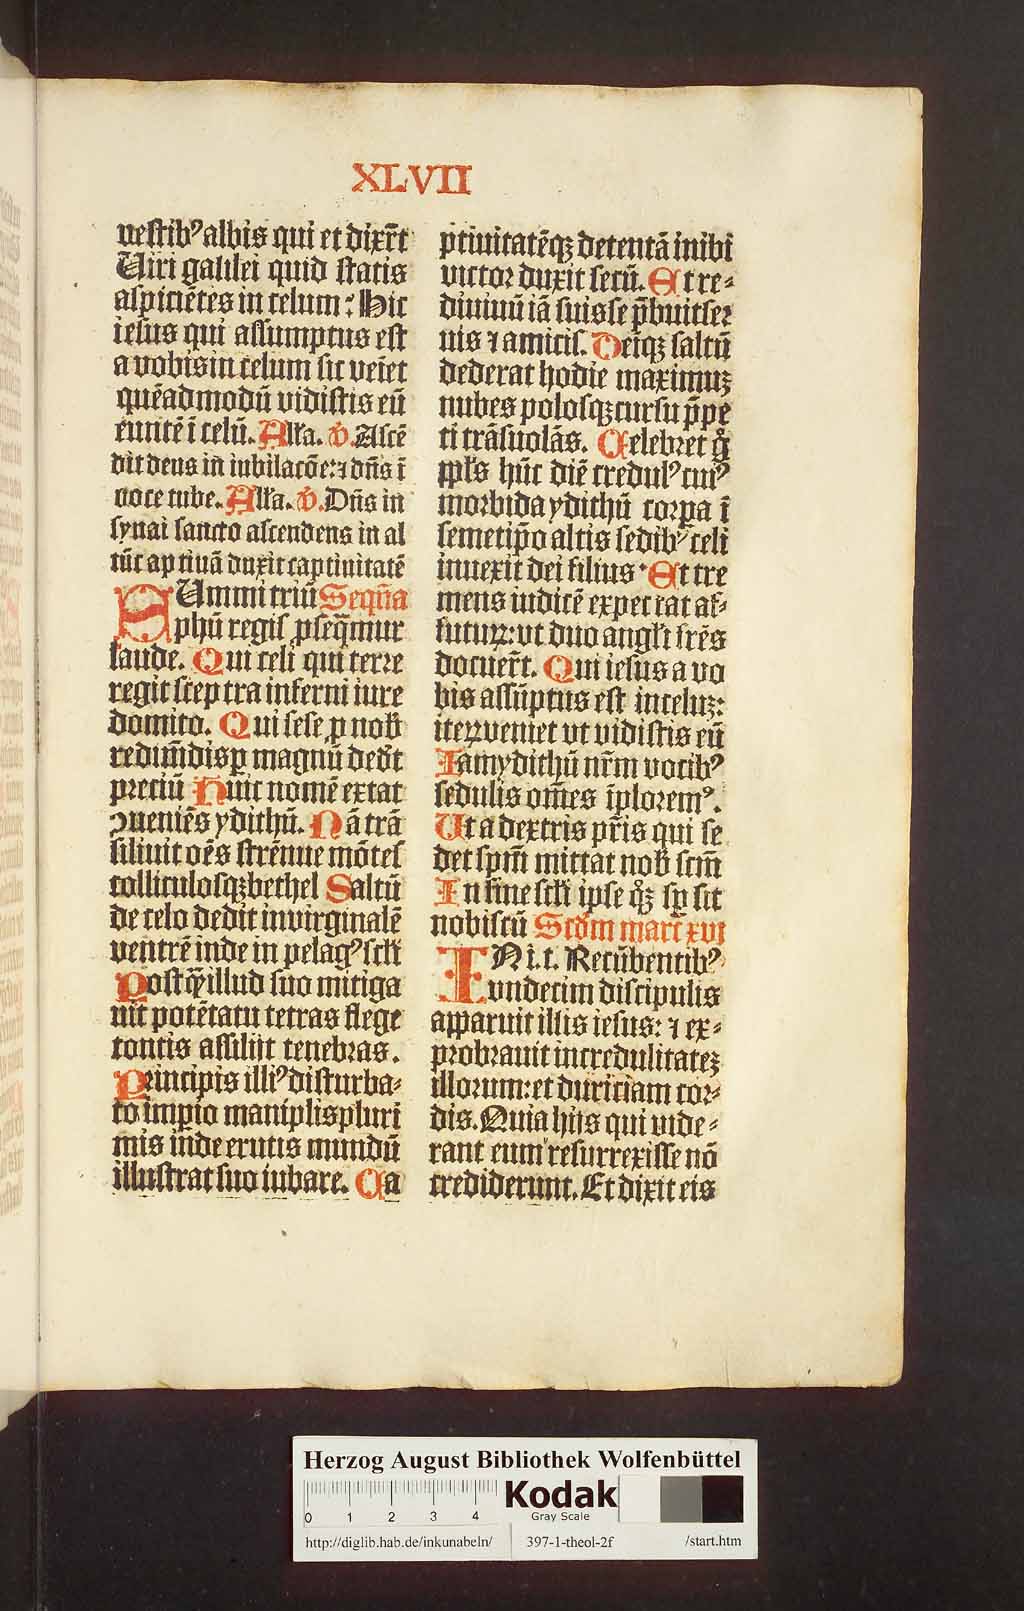 XLVII
vestibꝰ albis qui et dixer̄t
Viri galilei quid statis
aspiciētes in celum: Hic
iesus qui assumptus est
a vobis in celum sic veiet
quēadmodū vidistis eū
eūtē ī celū. Alľa. v̓. Ascē
dit deus in iubilacōe: ⁊ dn̄s ī
uoce tube. Alľa. v̓. Dn̄s in
synai sancto ascendens in al
tū captiuā duxit captiuitatē
SUmmi triū Sequn̄a
phū regis ꝓseq̄mur
laude. Qui celi qui terre
regit sceptra inferni iure
domito. Qui sese ꝓ nob̄
redimēdis ꝑ magnū dedit
preciū Huic nomē extat
ꝯueniēs ydithū. Nā trā
siliuit oēs strēnue mōtes
colliculosqꝫ bethel Saltū
de celo dedit in virginalē
ventrē inde in pelagꝰ scľi
Postq̄ illud suo mitiga
uit potētatu tetras flege
tontis assiliit tenebras.
Principis illiꝰ disturba⸗
to imꝑio maniplis pluri
mis inde erutis mundū
illustrat suo iubare. Ca
ptiuitatēqꝫ detentā inibi
victor duxit secū. Et re⸗
diuiuū iā suis se p̄buit ser
uis ⁊ amicis. Deiqꝫ saltū
dederat hodie maximuꝫ
nubes polosqꝫ cursu p̄pe
ti trāsuolās. Celebret g̊
ppľs hūc diē credulꝰ cuiꝰ
morbida ydithū corꝑa ī
semetip̄o altis sedibꝰ celi
inuexit dei filius. Et tre
mens iudicē expectat af⸗
futuꝝ: vt duo angľi frēs
docuer̄t. Qui iesus a vo
bis assūptus est in celuꝫ:
iteꝝ veniet vt vidistis eū
Iam ydithū nr̄m vocibꝰ
sedulis om̄es īploremꝰ.
Ut a dextris pr̄is qui se
det spm̄ mittat nob̄ scm̄
In fine scľi ipse q̊ꝫ sꝑ sit
nobiscū Scďm marc xvi
IN i. t. Recūbentibꝰ
vndecim discipulis
apparuit illis iesus: ⁊ ex⸗
probrauit incredulitateꝫ
illorum: et duriciam cor⸗
dis. Quia hiis qui vide⸗
rant eum resurrexisse nō
crediderunt. Et dixit eis
Herzog August Bibliothek Wolfenbüttel
0 1 2 3 4
Kodak
Gray Scale
http://diglib.hab.de/inkunabeln/ 397-1-theol-2f /start.htm